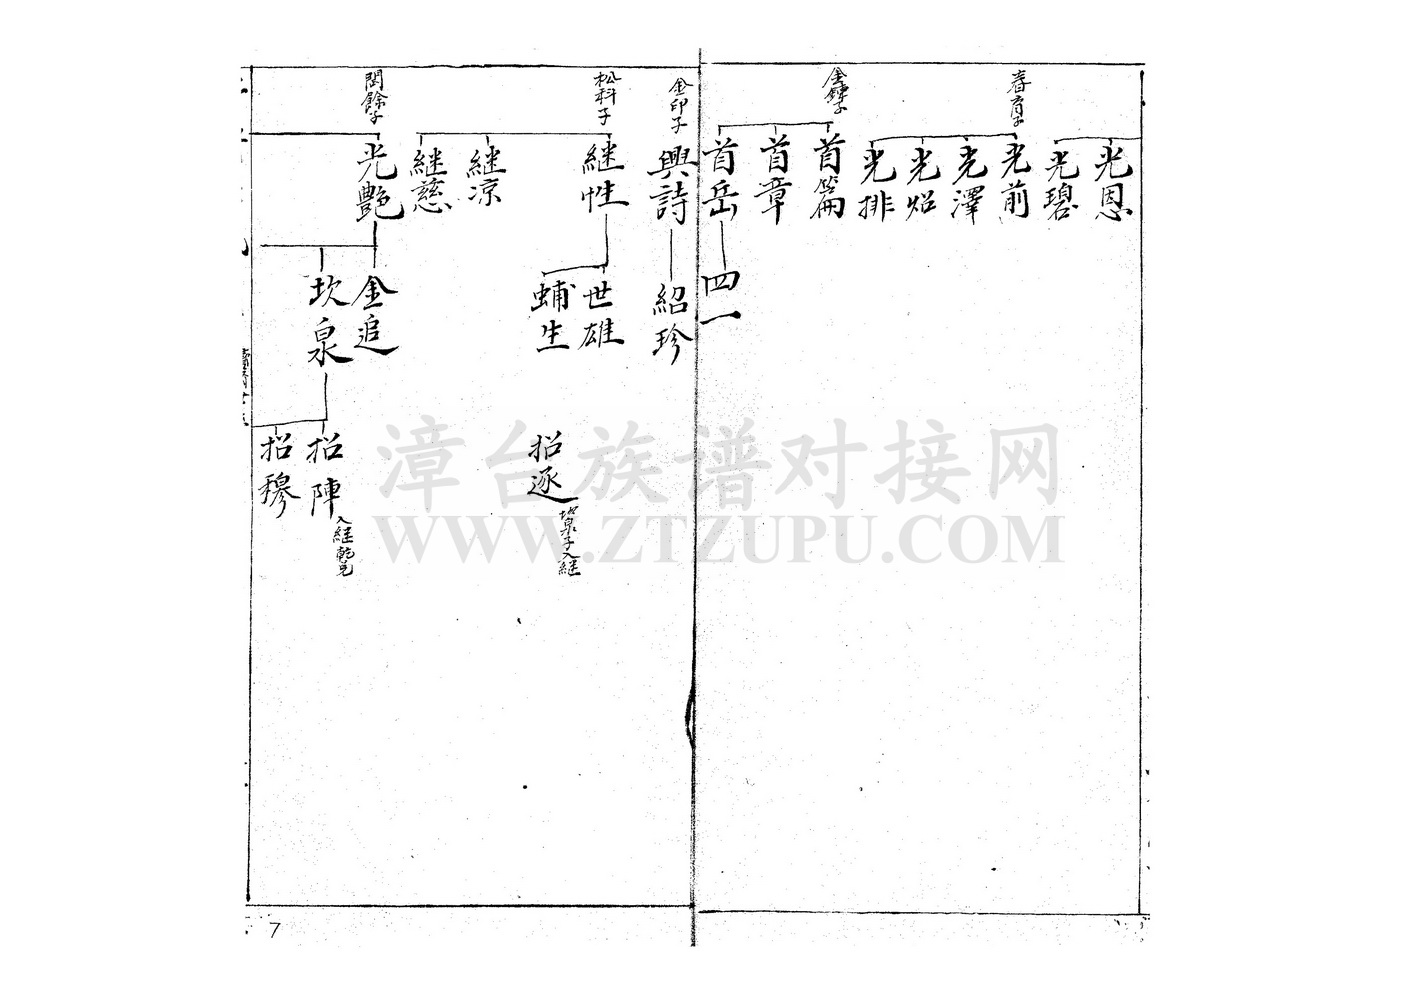 光恩
光碧
春育子
光前
光澤
光炤
光排
金鐘子
首篇
首章
首岳
四一
金印子
興詩
紹珍
松科子
継性
世雄
蜅生
招逐
坎泉子入継
継凉
継慈
閏餘子
光艷
金追
坎泉
招陣
招穆
漳台族谱对接网
WWW.ZTZUPU.COM
7